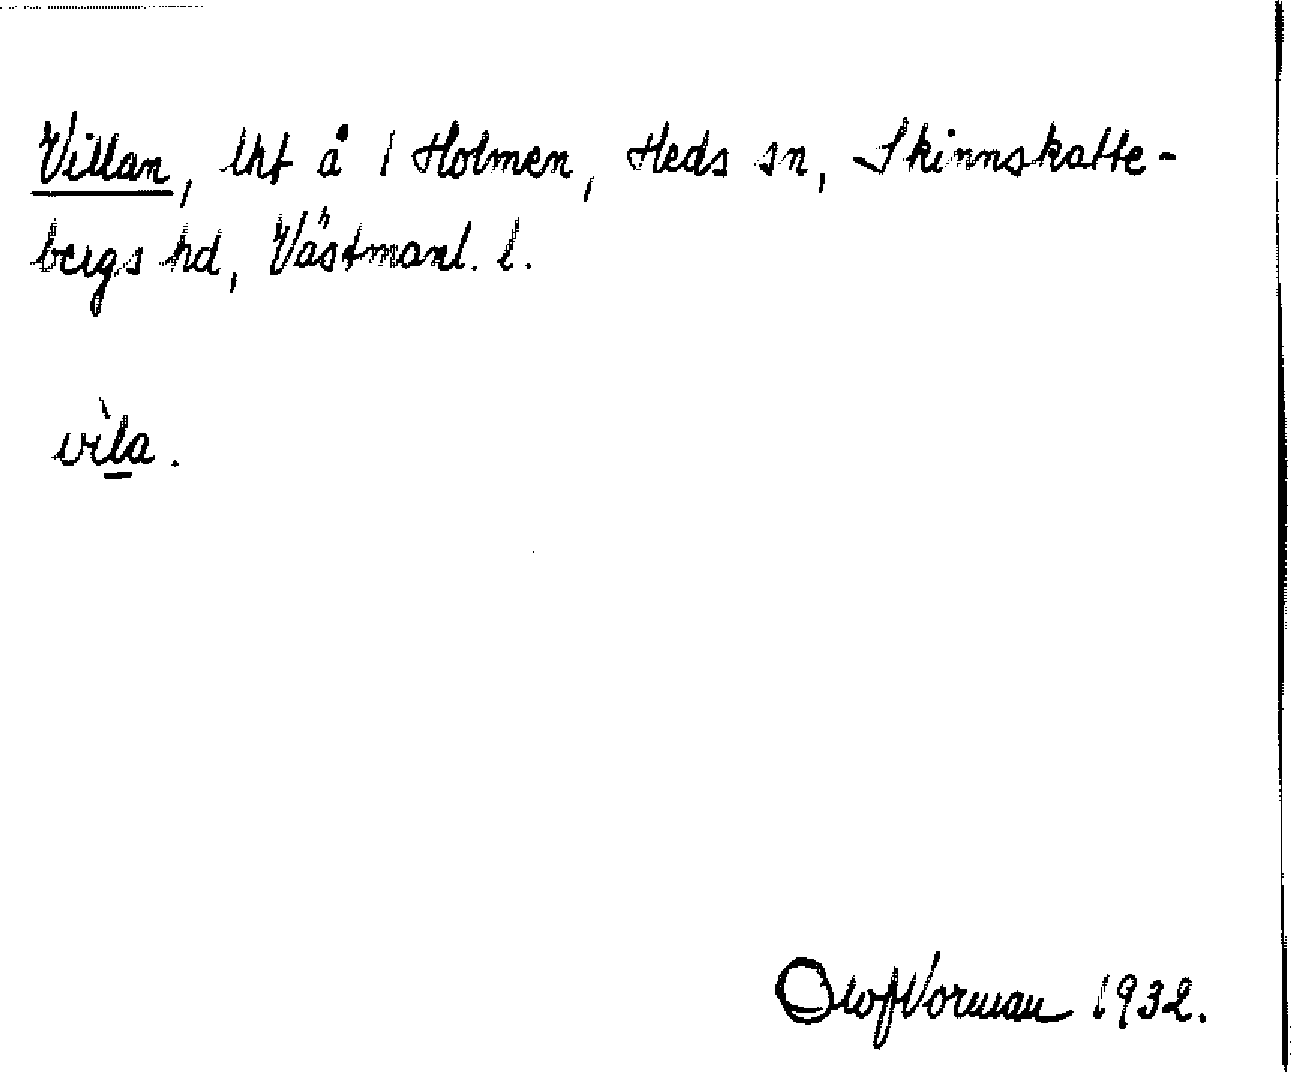 Villan, lht å 1 Holmen, Heds sn, Skinnskatte-
bergs hd, Västmanl. l.
vìla.
Olof Vorman 1932.